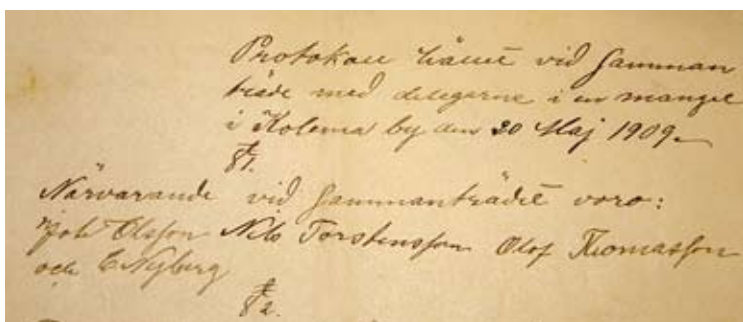 Protokoll hållet vid samman
träde med delegarne i en mangel
i Kolema by den 20 Maj 1909.
§ 1.
Närvarande vid sammanträdet voro:
Olsson Nils Torstensson Olof Thomasson
och C Nyberg
§ 2.